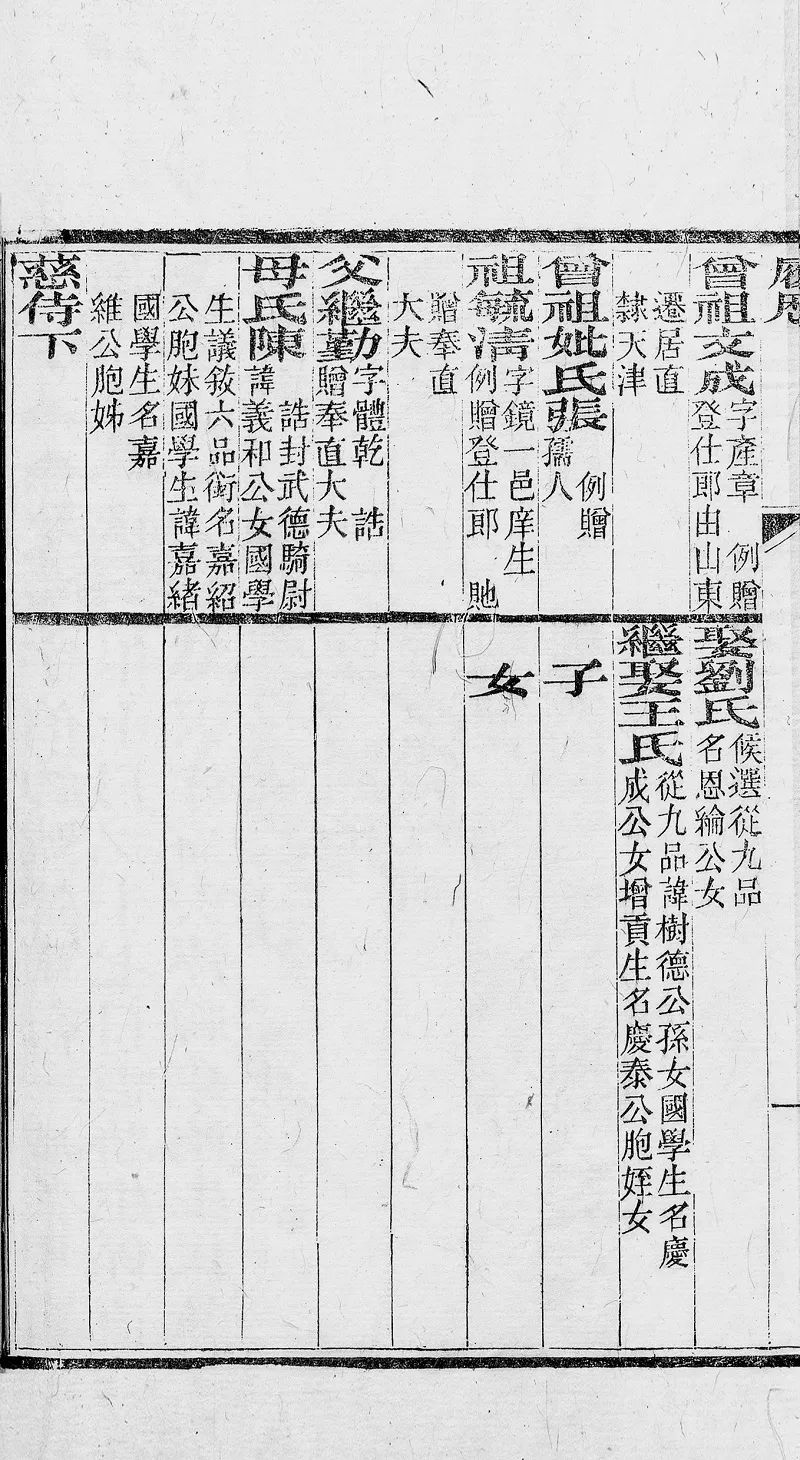 履歷
曾祖文成字產章　例贈
登仕郎由山東
遷居直
隸天津
曾祖妣氏張　例贈
孺人
祖毓清字鏡一邑庠生
例贈登仕郎　貤
贈奉直
大夫
父繼勤字體乾　誥
贈奉直大夫
母氏陳　誥封武德騎尉
諱義和公女國學
生議敘六品銜名嘉紹
公胞妹國學生諱嘉緒
國學生名嘉
維公胞姊
慈侍下
娶劉氏候選從九品
名恩綸公女
繼娶王氏從九品諱樹德公孫女國學生名慶
成公女增貢生名慶泰公胞姪女
子
女